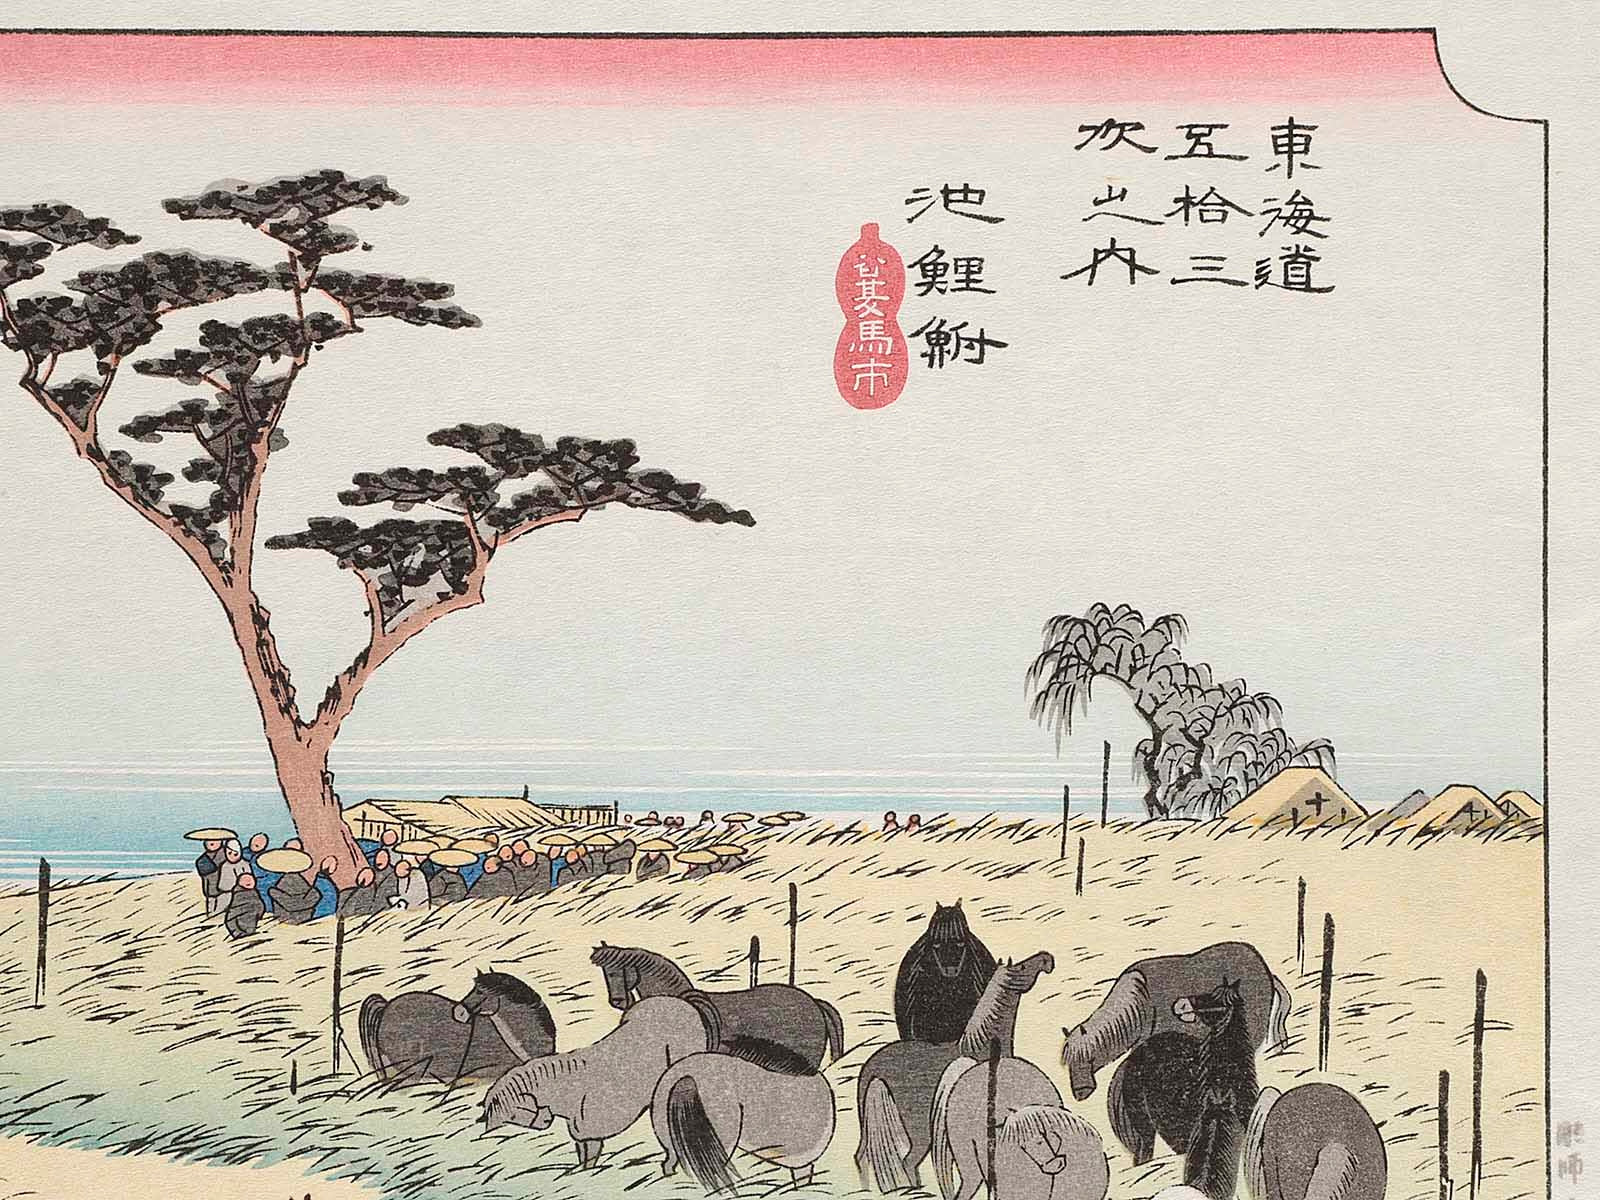 東海道
五拾三
次之内
池鯉鮒
首夏馬市
彫師